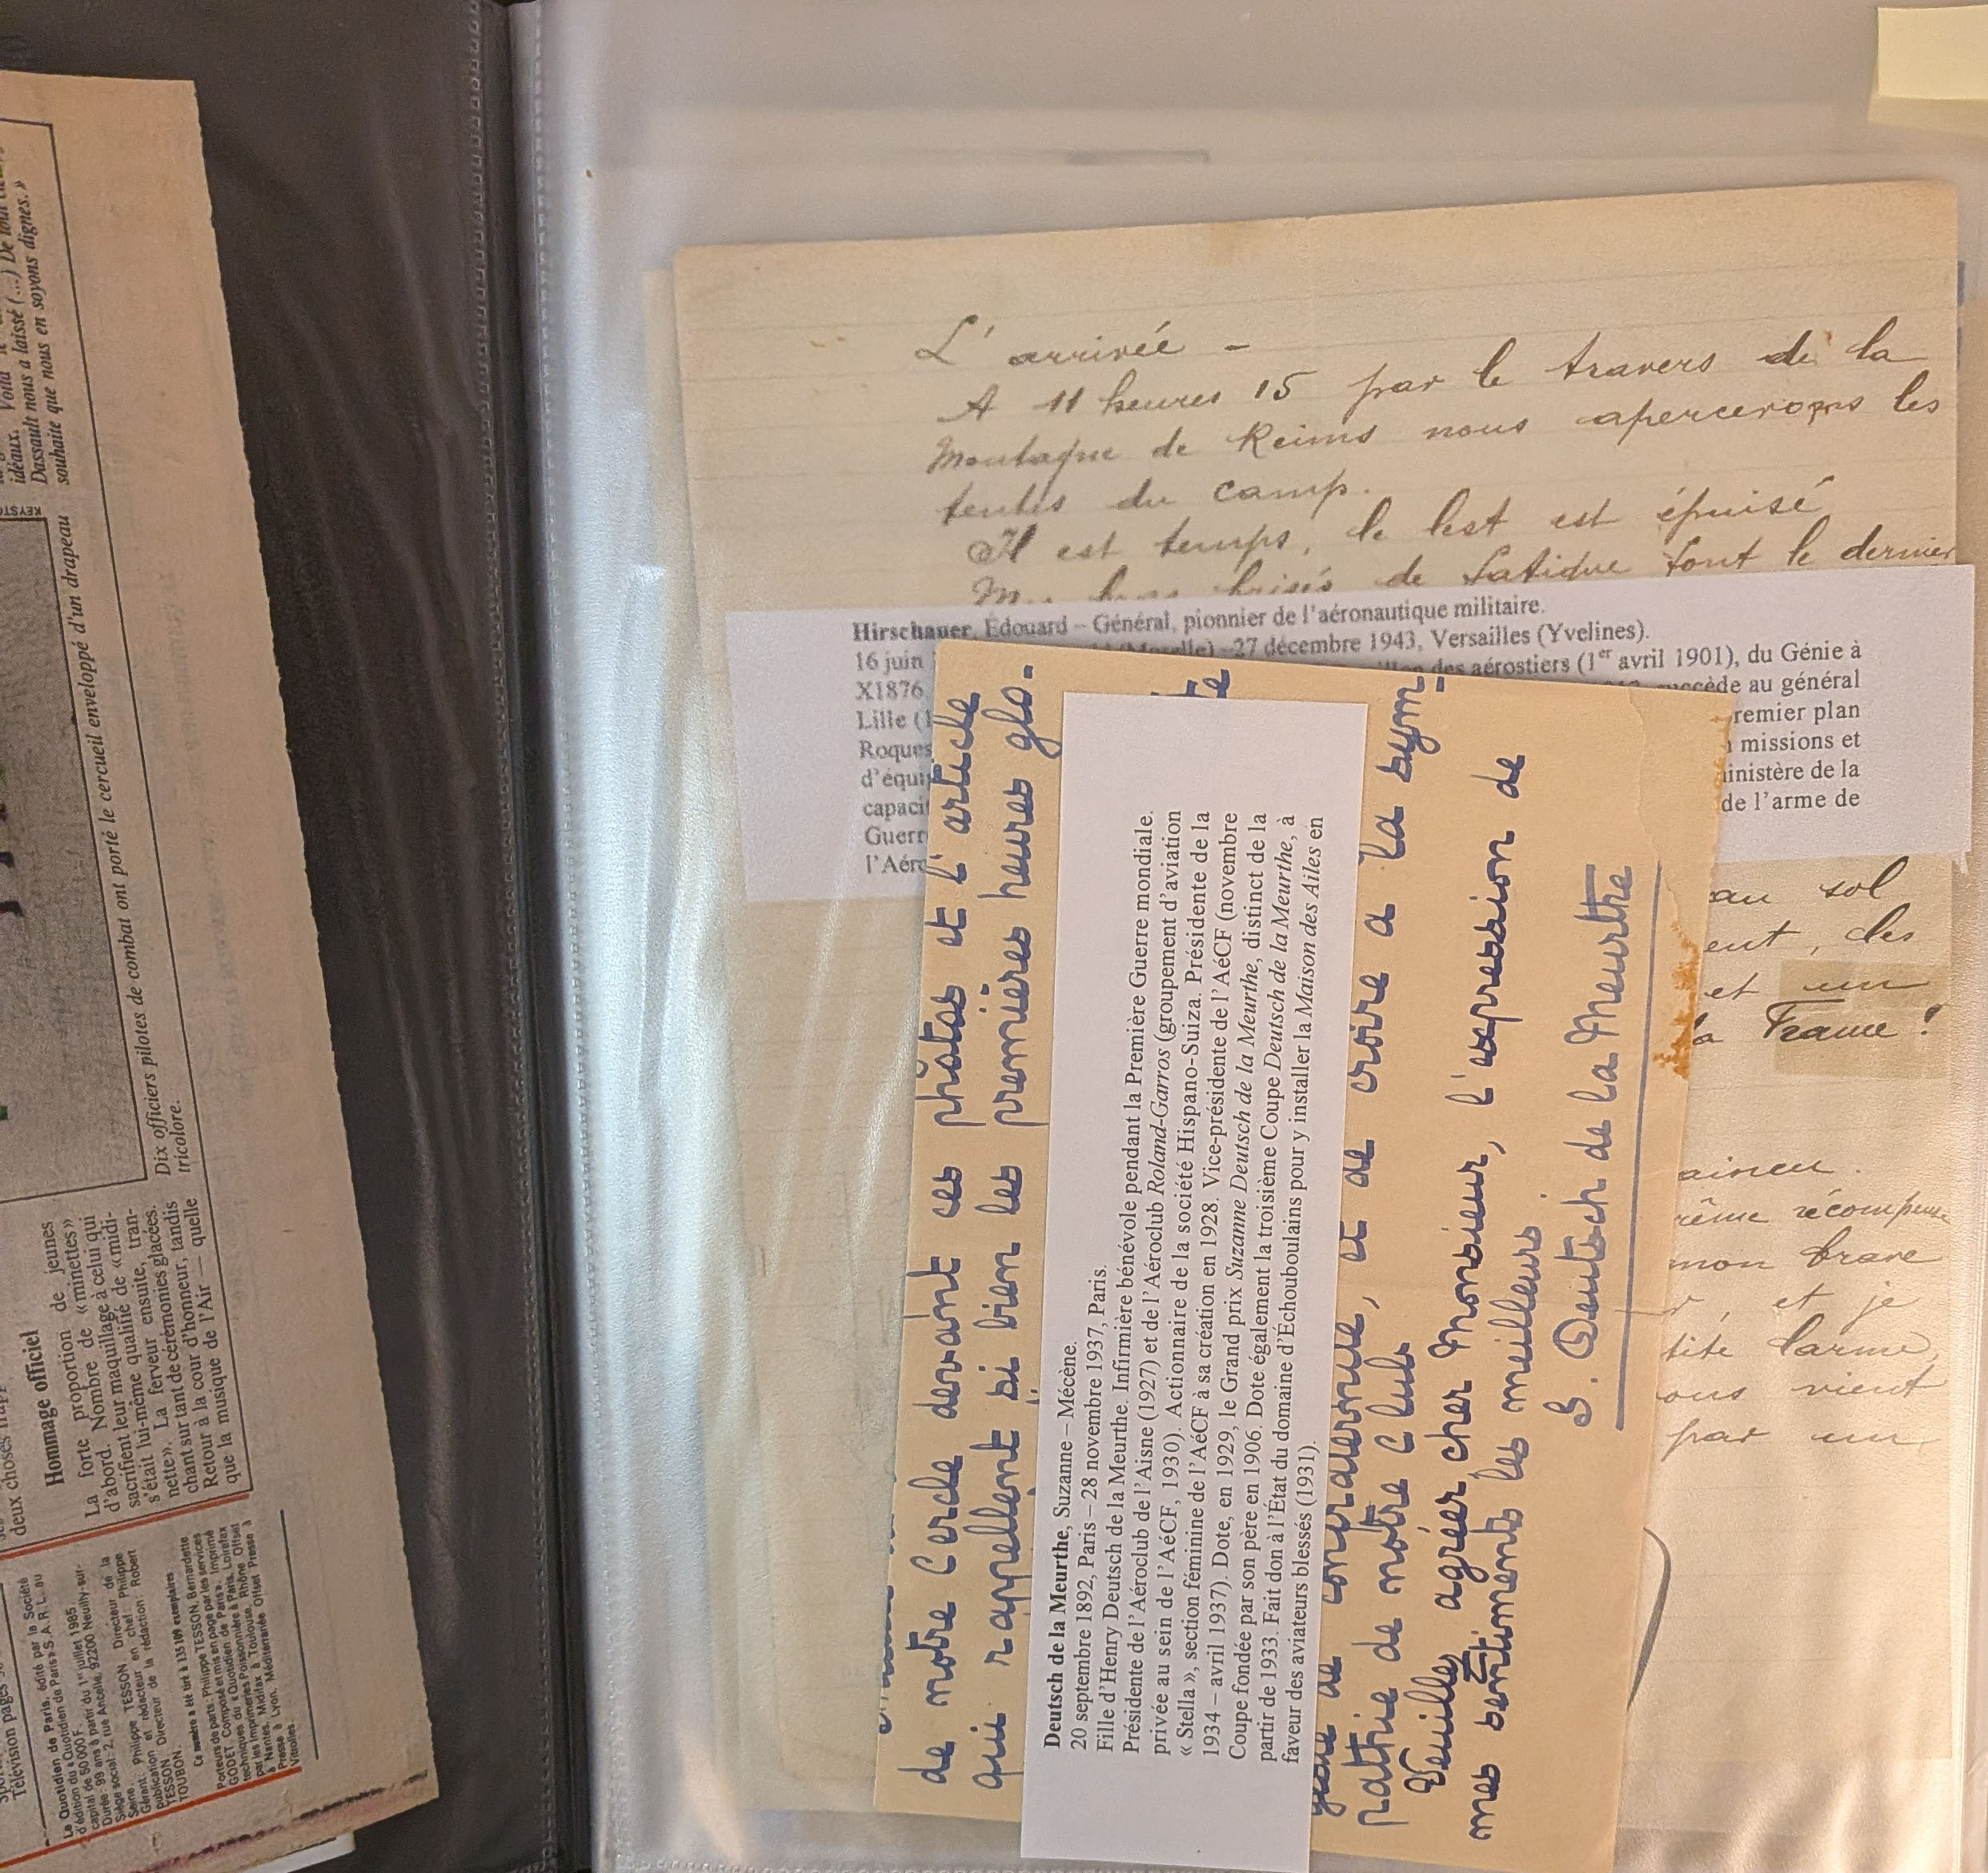 idéaux. Voilà
Dassault nous a laissé (...) De
souhaite que nous en soyons dignes.»
KEYSTO
Dix officiers pilotes de combat ont porté le cercueil enveloppé d'un drapeau
tricolore.
deux choses
Hommage officiel
La forte proportion de jeunes
d'abord. Nombre de «minettes»
sacrifient leur maquillage à celui qui
s'était lui-même qualifié de «midi-
nette». La ferveur ensuite, tran-
chant sur tant de cérémonies glacées.
Retour à la cour d'honneur, tandis
que la musique de l'Air — quelle
Télévision pages
Le Quotidien de Paris, édité par la Société
d'édition du «Quotidien de Paris» S.A.R.L. au
capital de 50 000 F.
Durée : 99 ans à partir du 1er juillet 1985
Siège social : 2, rue Ancelle, 92200 Neuilly-sur-
Seine.
Gérant : Philippe TESSON. Directeur de la
Publication et rédacteur en chef : Philippe
TESSON. Directeur de la rédaction : Robert
TOUBON.
Ce numéro a été tiré à 135 109 exemplaires
Porteurs de parts : Philippe TESSON, Bernardette
GODET. Composé et mis en page par les services
techniques du «Quotidien de Paris». Imprimé
par les Imprimeries Poissonnière à Paris, Loirefax
à Nantes, Midifax à Toulouse, Rhône Offset
Presse à Lyon, Méditerranée Offset Presse à
Vitrolles.
L'arrivée -
A 11 heures 15 par le travers de la
Montagne de Reims nous apercevons les
tentes du camp.
Il est temps, le lest est épuisé
brisés de fatigue font le dernier
Hirschauer, Édouard – Général, pionnier de l'aéronautique militaire.
16 juin (Moselle) – 27 décembre 1943, Versailles (Yvelines).
X1876 des aérostiers (1er avril 1901), du Génie à
Lille ( succède au général
Roques premier plan
d'équi missions et
capaci ministère de la
Guerr de l'arme de
l'Aéro
au sol
ent, des
et un
la France !
aincu.
rême récompense
mon brave
, et je
tite larme,
ous vient
par un
de notre Cercle devant ces photos et l'article
qui rappellent si bien les premières heures glo-
Deutsch de la Meurthe, Suzanne – Mécène.
20 septembre 1892, Paris – 28 novembre 1937, Paris.
Fille d'Henry Deutsch de la Meurthe. Infirmière bénévole pendant la Première Guerre mondiale.
Présidente de l'Aéroclub de l'Aisne (1927) et de l'Aéroclub Roland-Garros (groupement d'aviation
privée au sein de l'AéCF, 1930). Actionnaire de la société Hispano-Suiza. Présidente de la
« Stella », section féminine de l'AéCF à sa création en 1928. Vice-présidente de l'AéCF (novembre
1934 – avril 1937). Dote, en 1929, le Grand prix Suzanne Deutsch de la Meurthe, distinct de la
Coupe fondée par son père en 1906. Dote également la troisième Coupe Deutsch de la Meurthe, à
partir de 1933. Fait don à l'État du domaine d'Échouboulains pour y installer la Maison des Ailes en
faveur des aviateurs blessés (1931).
de et de croire à la sym-
pathie de notre Club.
Veuillez agréer cher Monsieur, l'expression de
mes sentiments les meilleurs.
S. Deutsch de la Meurthe